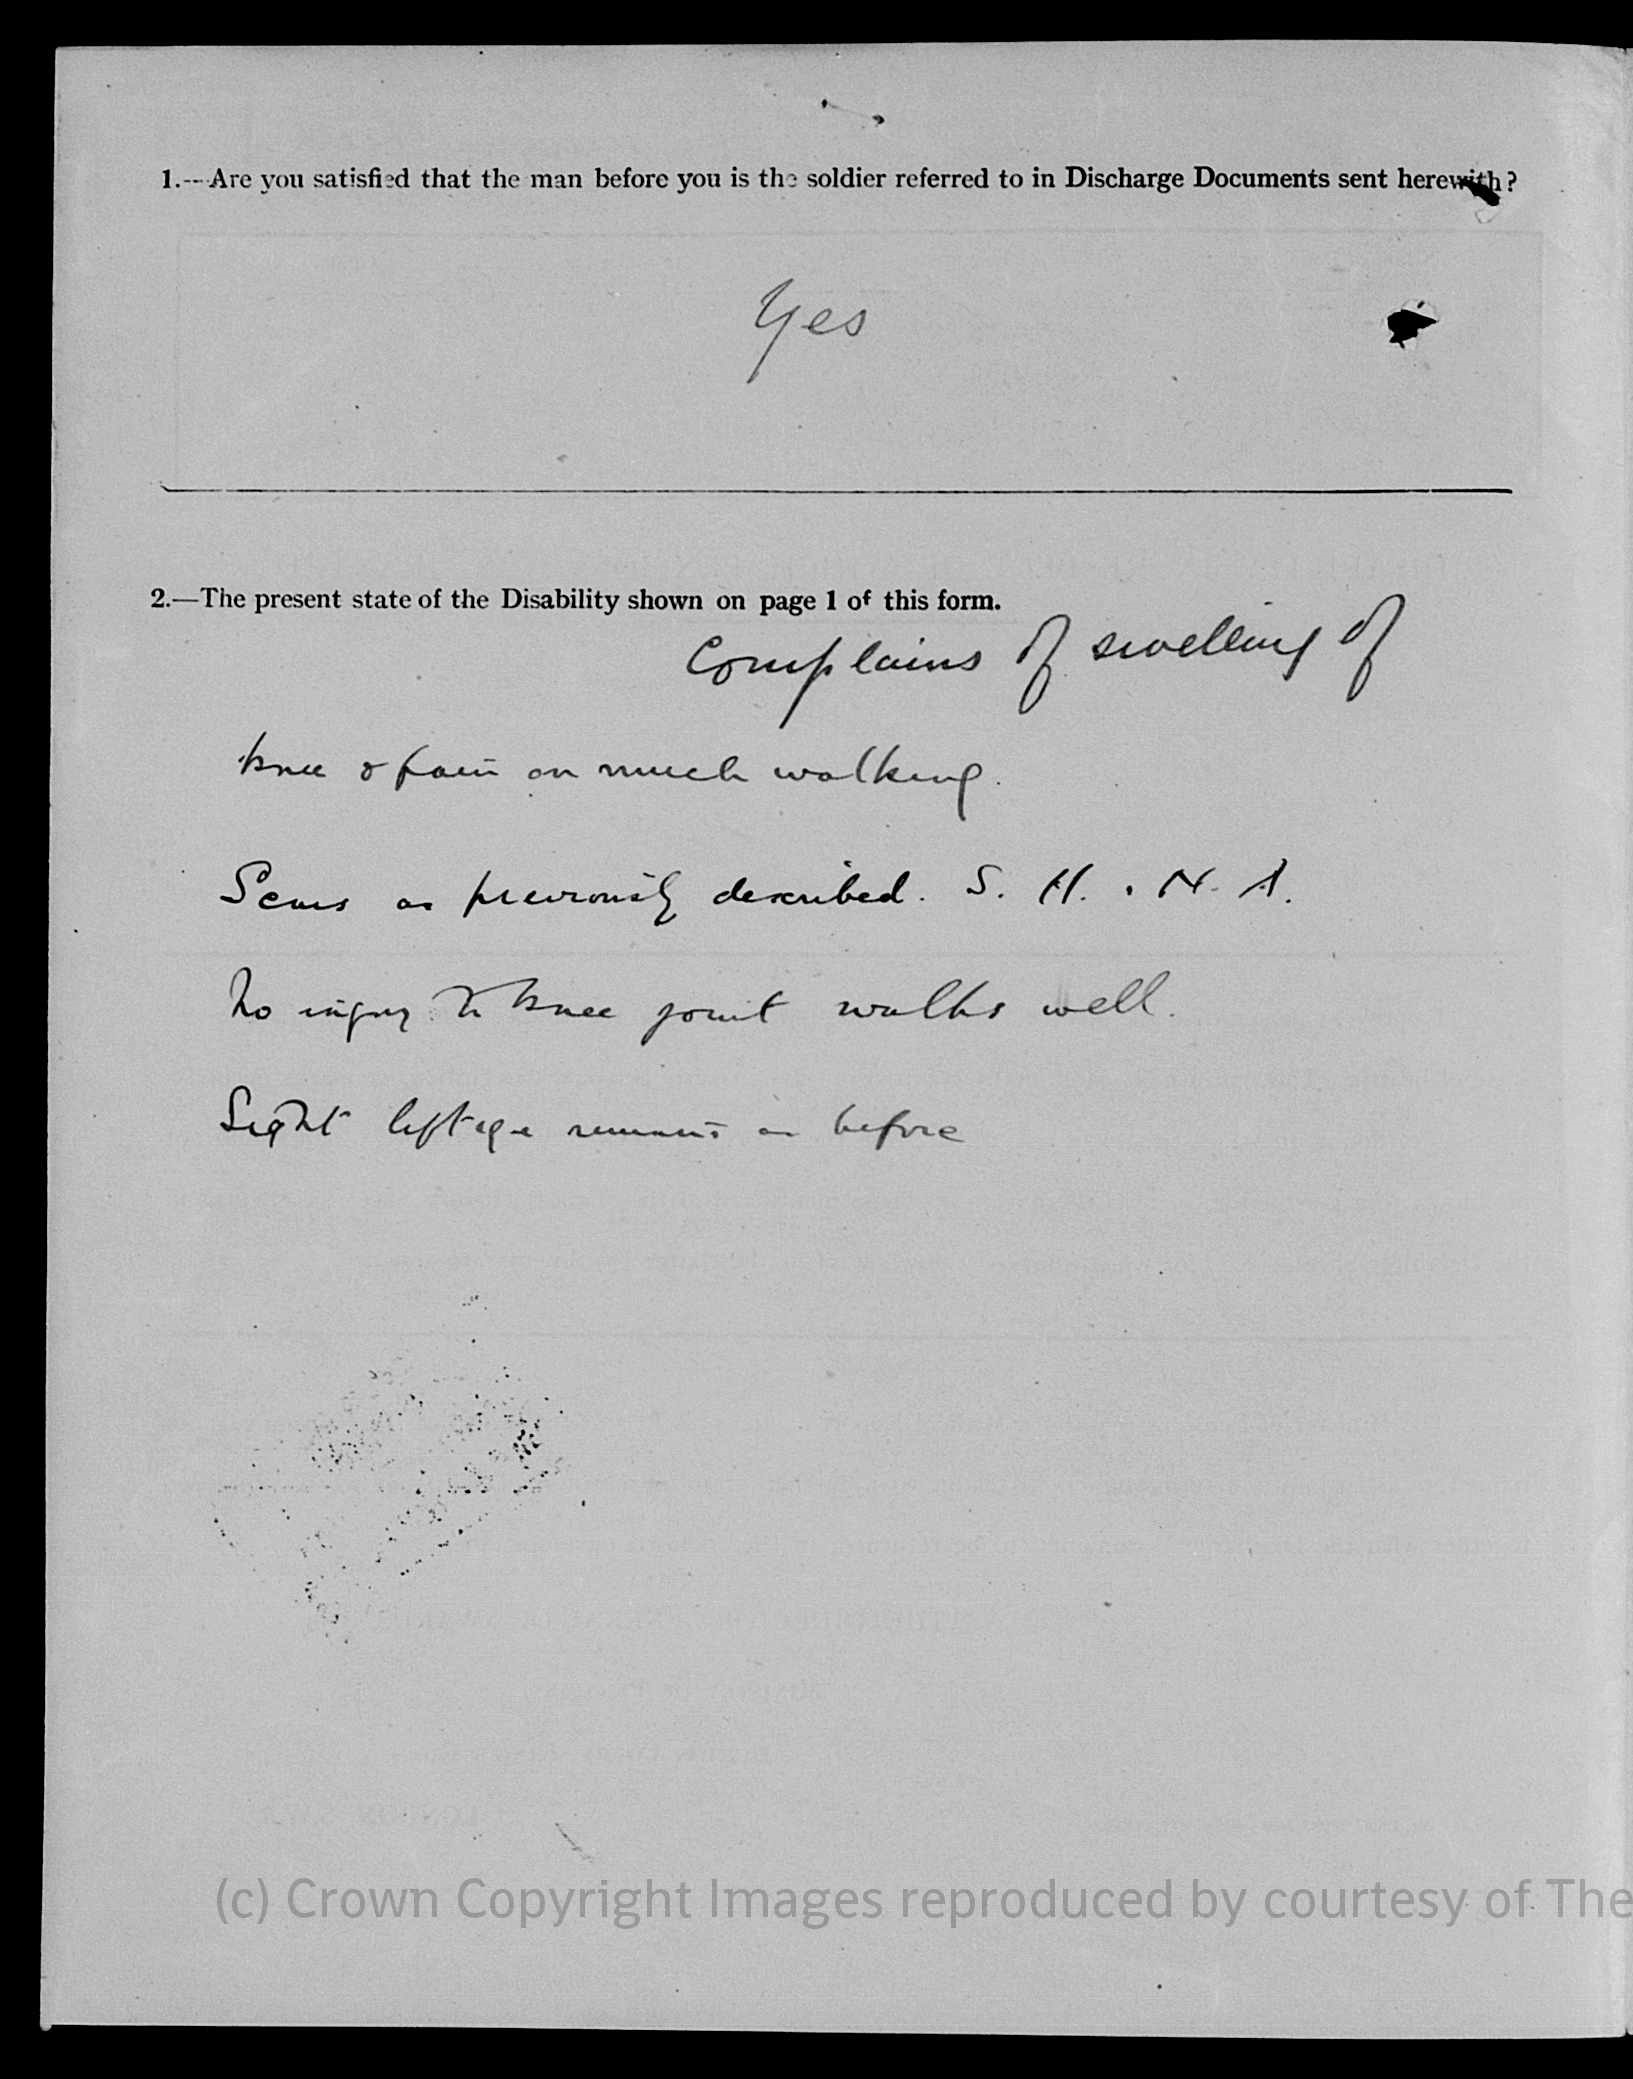 1.—Are you satisfied that the man before you is the soldier referred to in Discharge Documents sent herewith?
Yes
2.—The present state of the Disability shown on page 1 of this form.
Complains of swelling of
knee & pain on much walking.
Scars as previously described. S. H. . N. A.
No injury to knee joint walks well.
Sight left eye remains as before
(c) Crown Copyright Images reproduced by courtesy of The